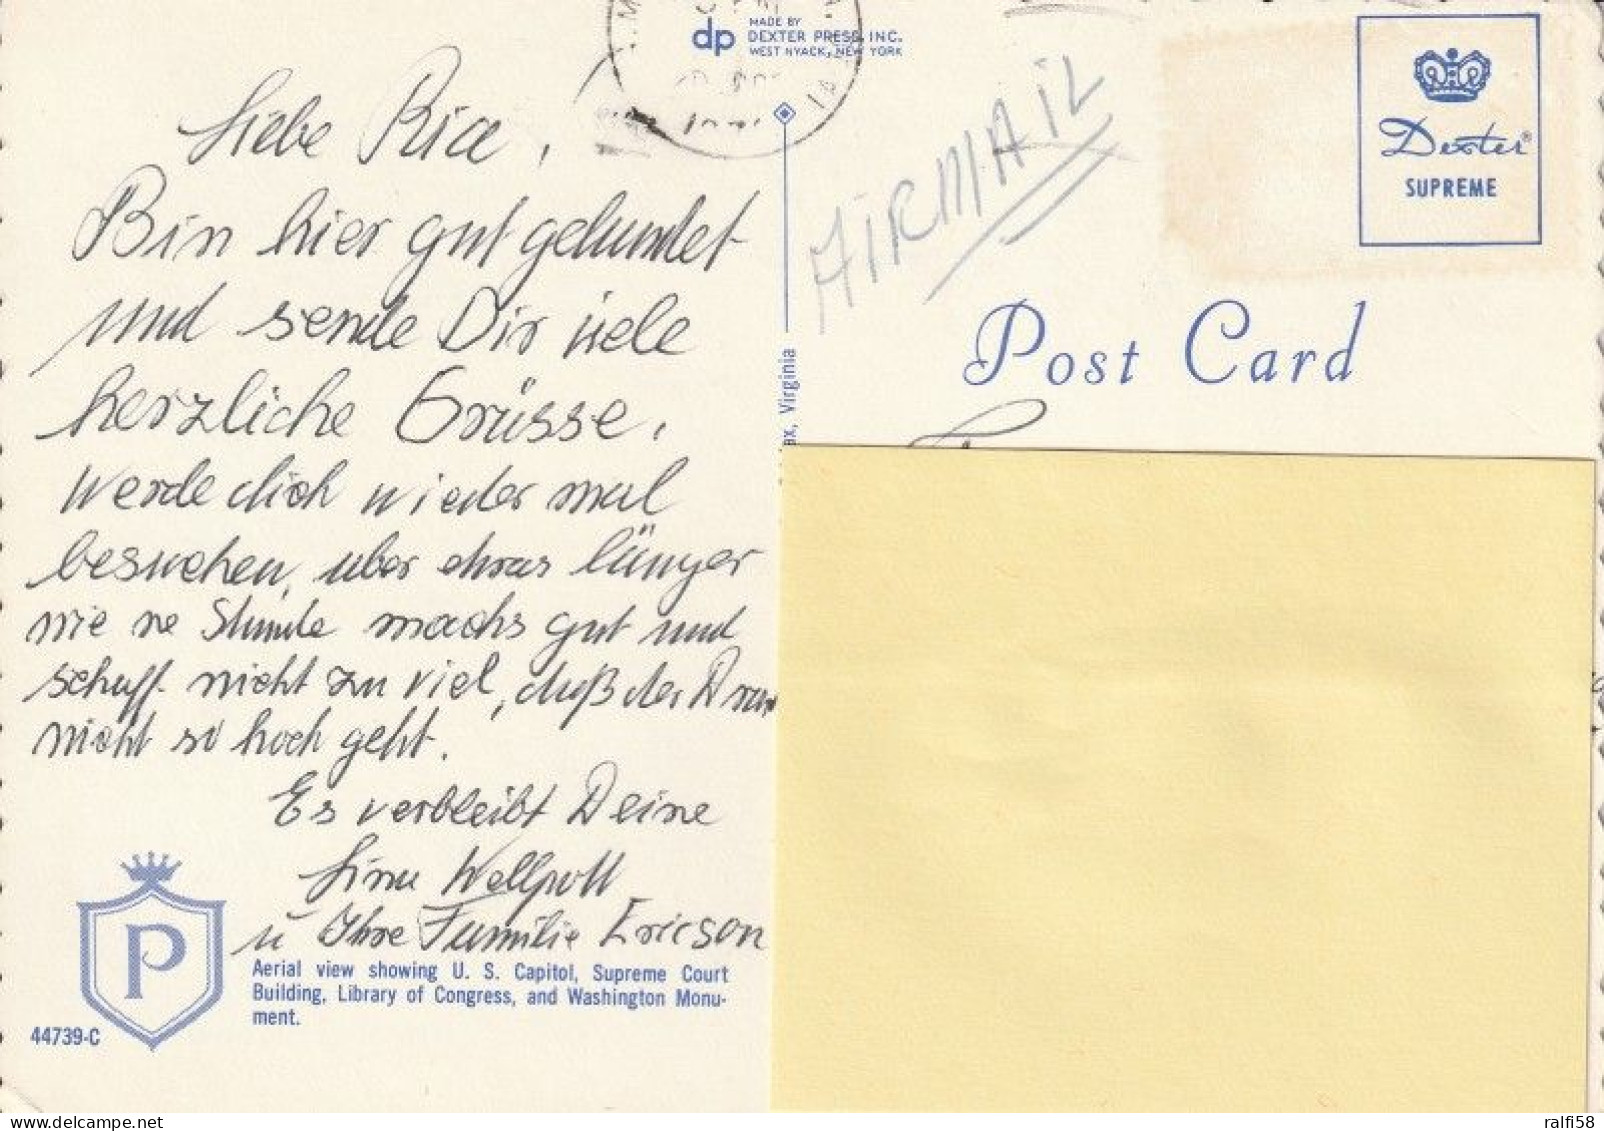 dp MADE BY
DEXTER PRESS, INC.
WEST NYACK, NEW YORK
Liebe Rica,
Bin hier gut gelandet
und sende Dir viele
herzliche Grüsse.
Werde dich wieder mal
besuchen, aber etwas länger
wie ne Stunde machs gut und
schaff nicht zu viel, daß der
nicht so hoch geht.
Es verbleibt Deine
u Ihre Familie Ericson
AIRMAIL
Dexter®
SUPREME
Post Card
Virginia
P
Aerial view showing U. S. Capitol, Supreme Court
Building, Library of Congress, and Washington Monu-
ment.
44739-C
ralfi58